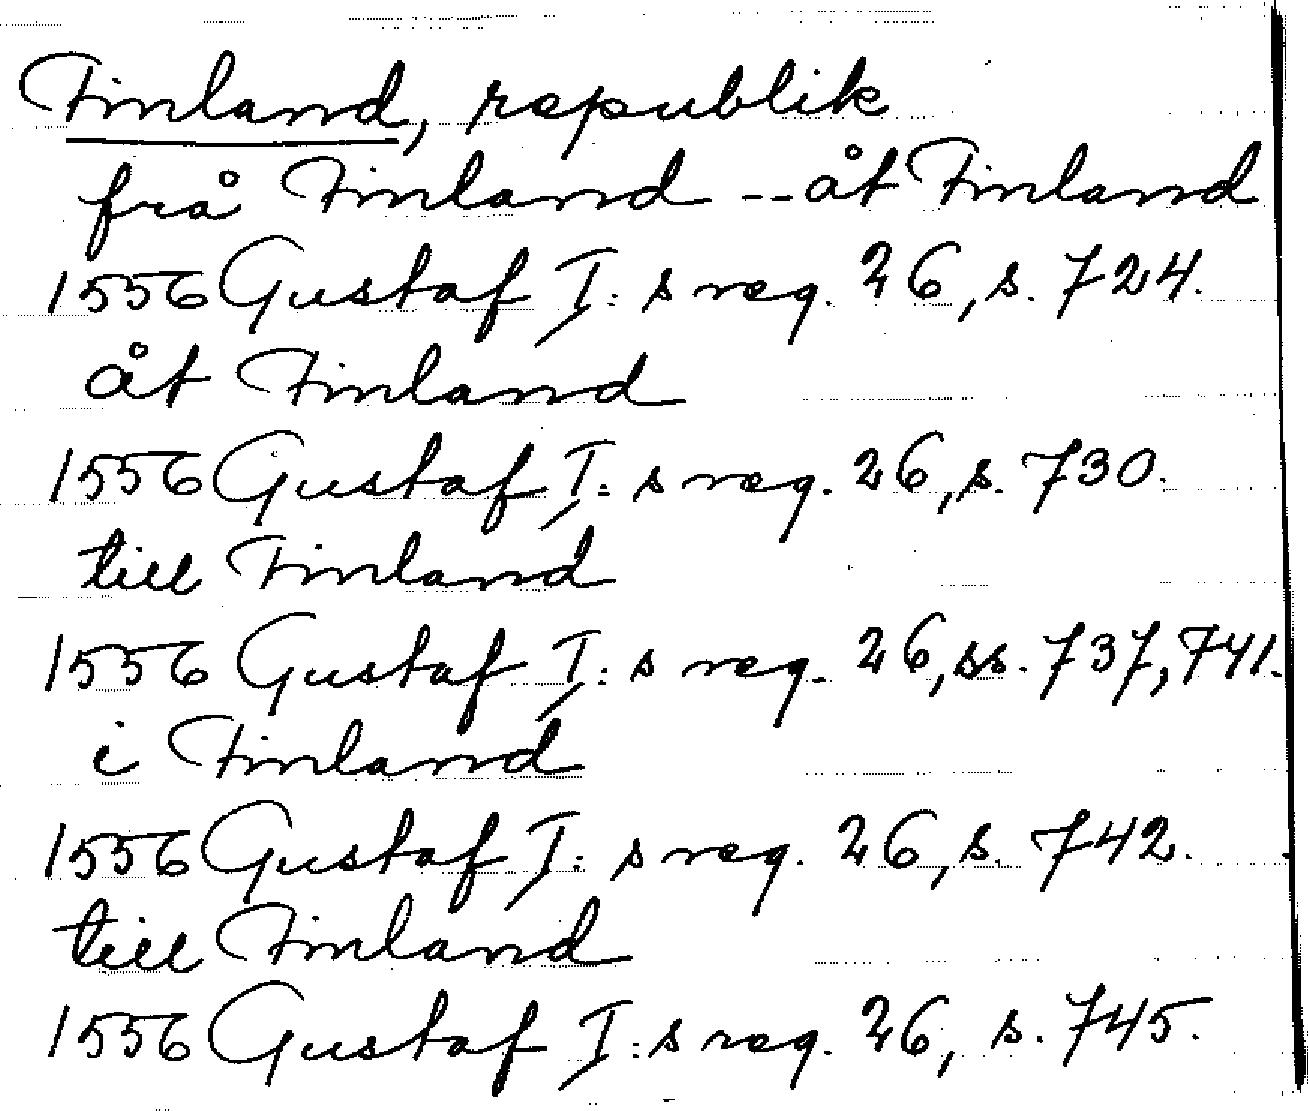 Finland, republik
frå Finland -- åt Finland
1556 Gustaf I: s reg. 26, s. 724.
åt Finland
1556 Gustaf I: s reg. 26, s. 730.
till Finland
1556 Gustaf I: s reg. 26, ss. 737, 741.
i Finland
1556 Gustaf I: s reg. 26, s. 742.
till Finland
1556 Gustaf I: s reg. 26, s. 745.